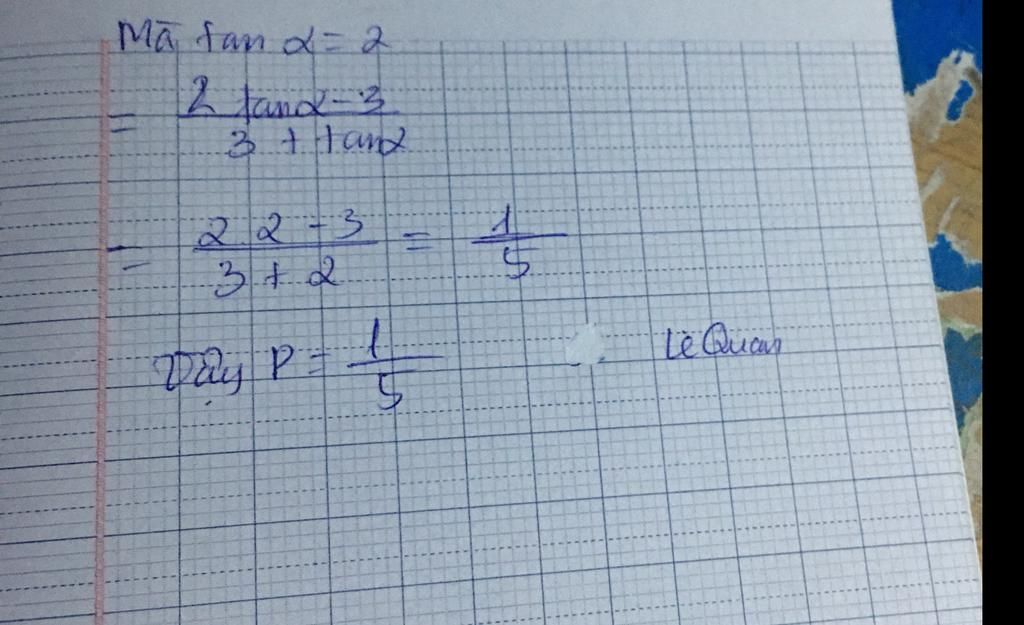 Mà tan α = 2
= \frac{2 tanα - 3}{3 + tanα}
= \frac{2.2 - 3}{3 + 2} = \frac{1}{5}
Vậy P = \frac{1}{5} Lê Quan